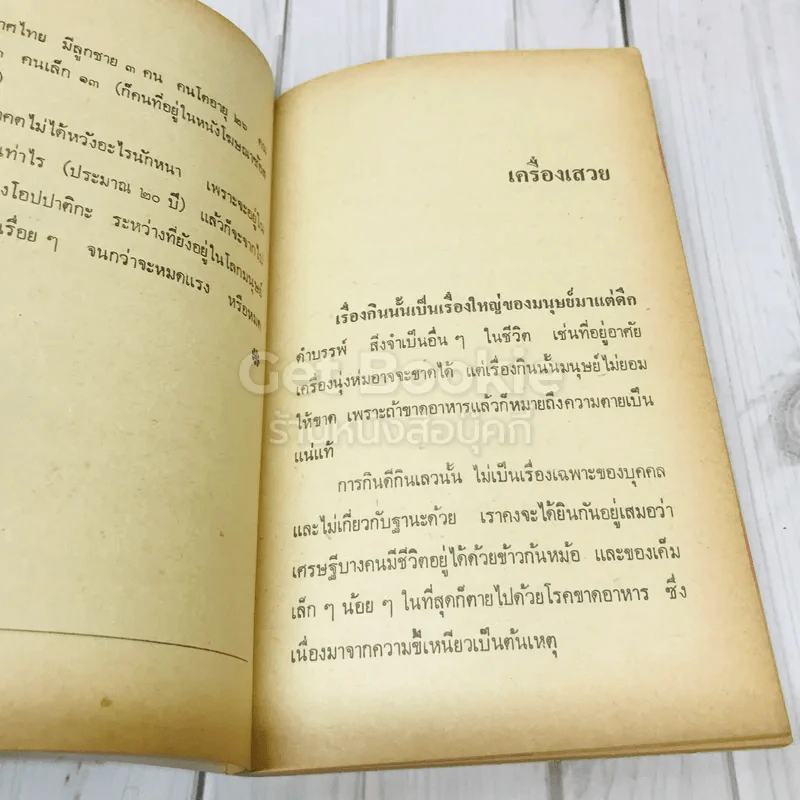 าศไทย มีลูกชาย ๓ คน คนโตอายุ ๒๖
คนเล็ก ๑๓ (ก็คนที่อยู่ในหนังโฆษณา
คตไม่ได้หวังอะไรนักหนา เพราะจะอยู่
นเท่าไร (ประมาณ ๒๐ ปี) แล้วก็จะจากไป
งโอปปาติกะ ระหว่างที่ยังอยู่ในโลกมนุษย์
เรื่อย ๆ จนกว่าจะหมดแรง หรือหมด
เครื่องเสวย
เรื่องกินนั้นเป็นเรื่องใหญ่ของมนุษย์มาแต่ดึก
ดำบรรพ์ สิ่งจำเป็นอื่น ๆ ในชีวิต เช่นที่อยู่อาศัย
เครื่องนุ่งห่มอาจจะขาดได้ แต่เรื่องกินนั้นมนุษย์ไม่ยอม
ให้ขาด เพราะถ้าขาดอาหารแล้วก็หมายถึงความตายเป็น
แน่แท้
การกินดีกินเลวนั้น ไม่เป็นเรื่องเฉพาะของบุคคล
และไม่เกี่ยวกับฐานะด้วย เราคงจะได้ยินกันอยู่เสมอว่า
เศรษฐีบางคนมีชีวิตอยู่ได้ด้วยข้าวก้นหม้อ และของเค็ม
เล็ก ๆ น้อย ๆ ในที่สุดก็ตายไปด้วยโรคขาดอาหาร ซึ่ง
เนื่องมาจากความขี้เหนียวเป็นต้นเหตุ
Get Bookie
ร้านหนังสือบุคกี้